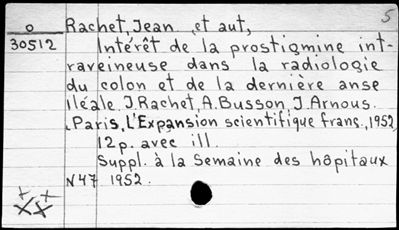 5
O Rachet, Jean et aut,
30512 Intérêt de la prostigmine int-
raveineuse dans la radiologie
du colon et de la dernière anse
iléale. J.Rachet, A.Busson, J.Arnous.
Paris, L'Expansion scientifique franç., 1952,
12p. avec ill.
Suppl. à la Semaine des hôpitaux
N47 1952.